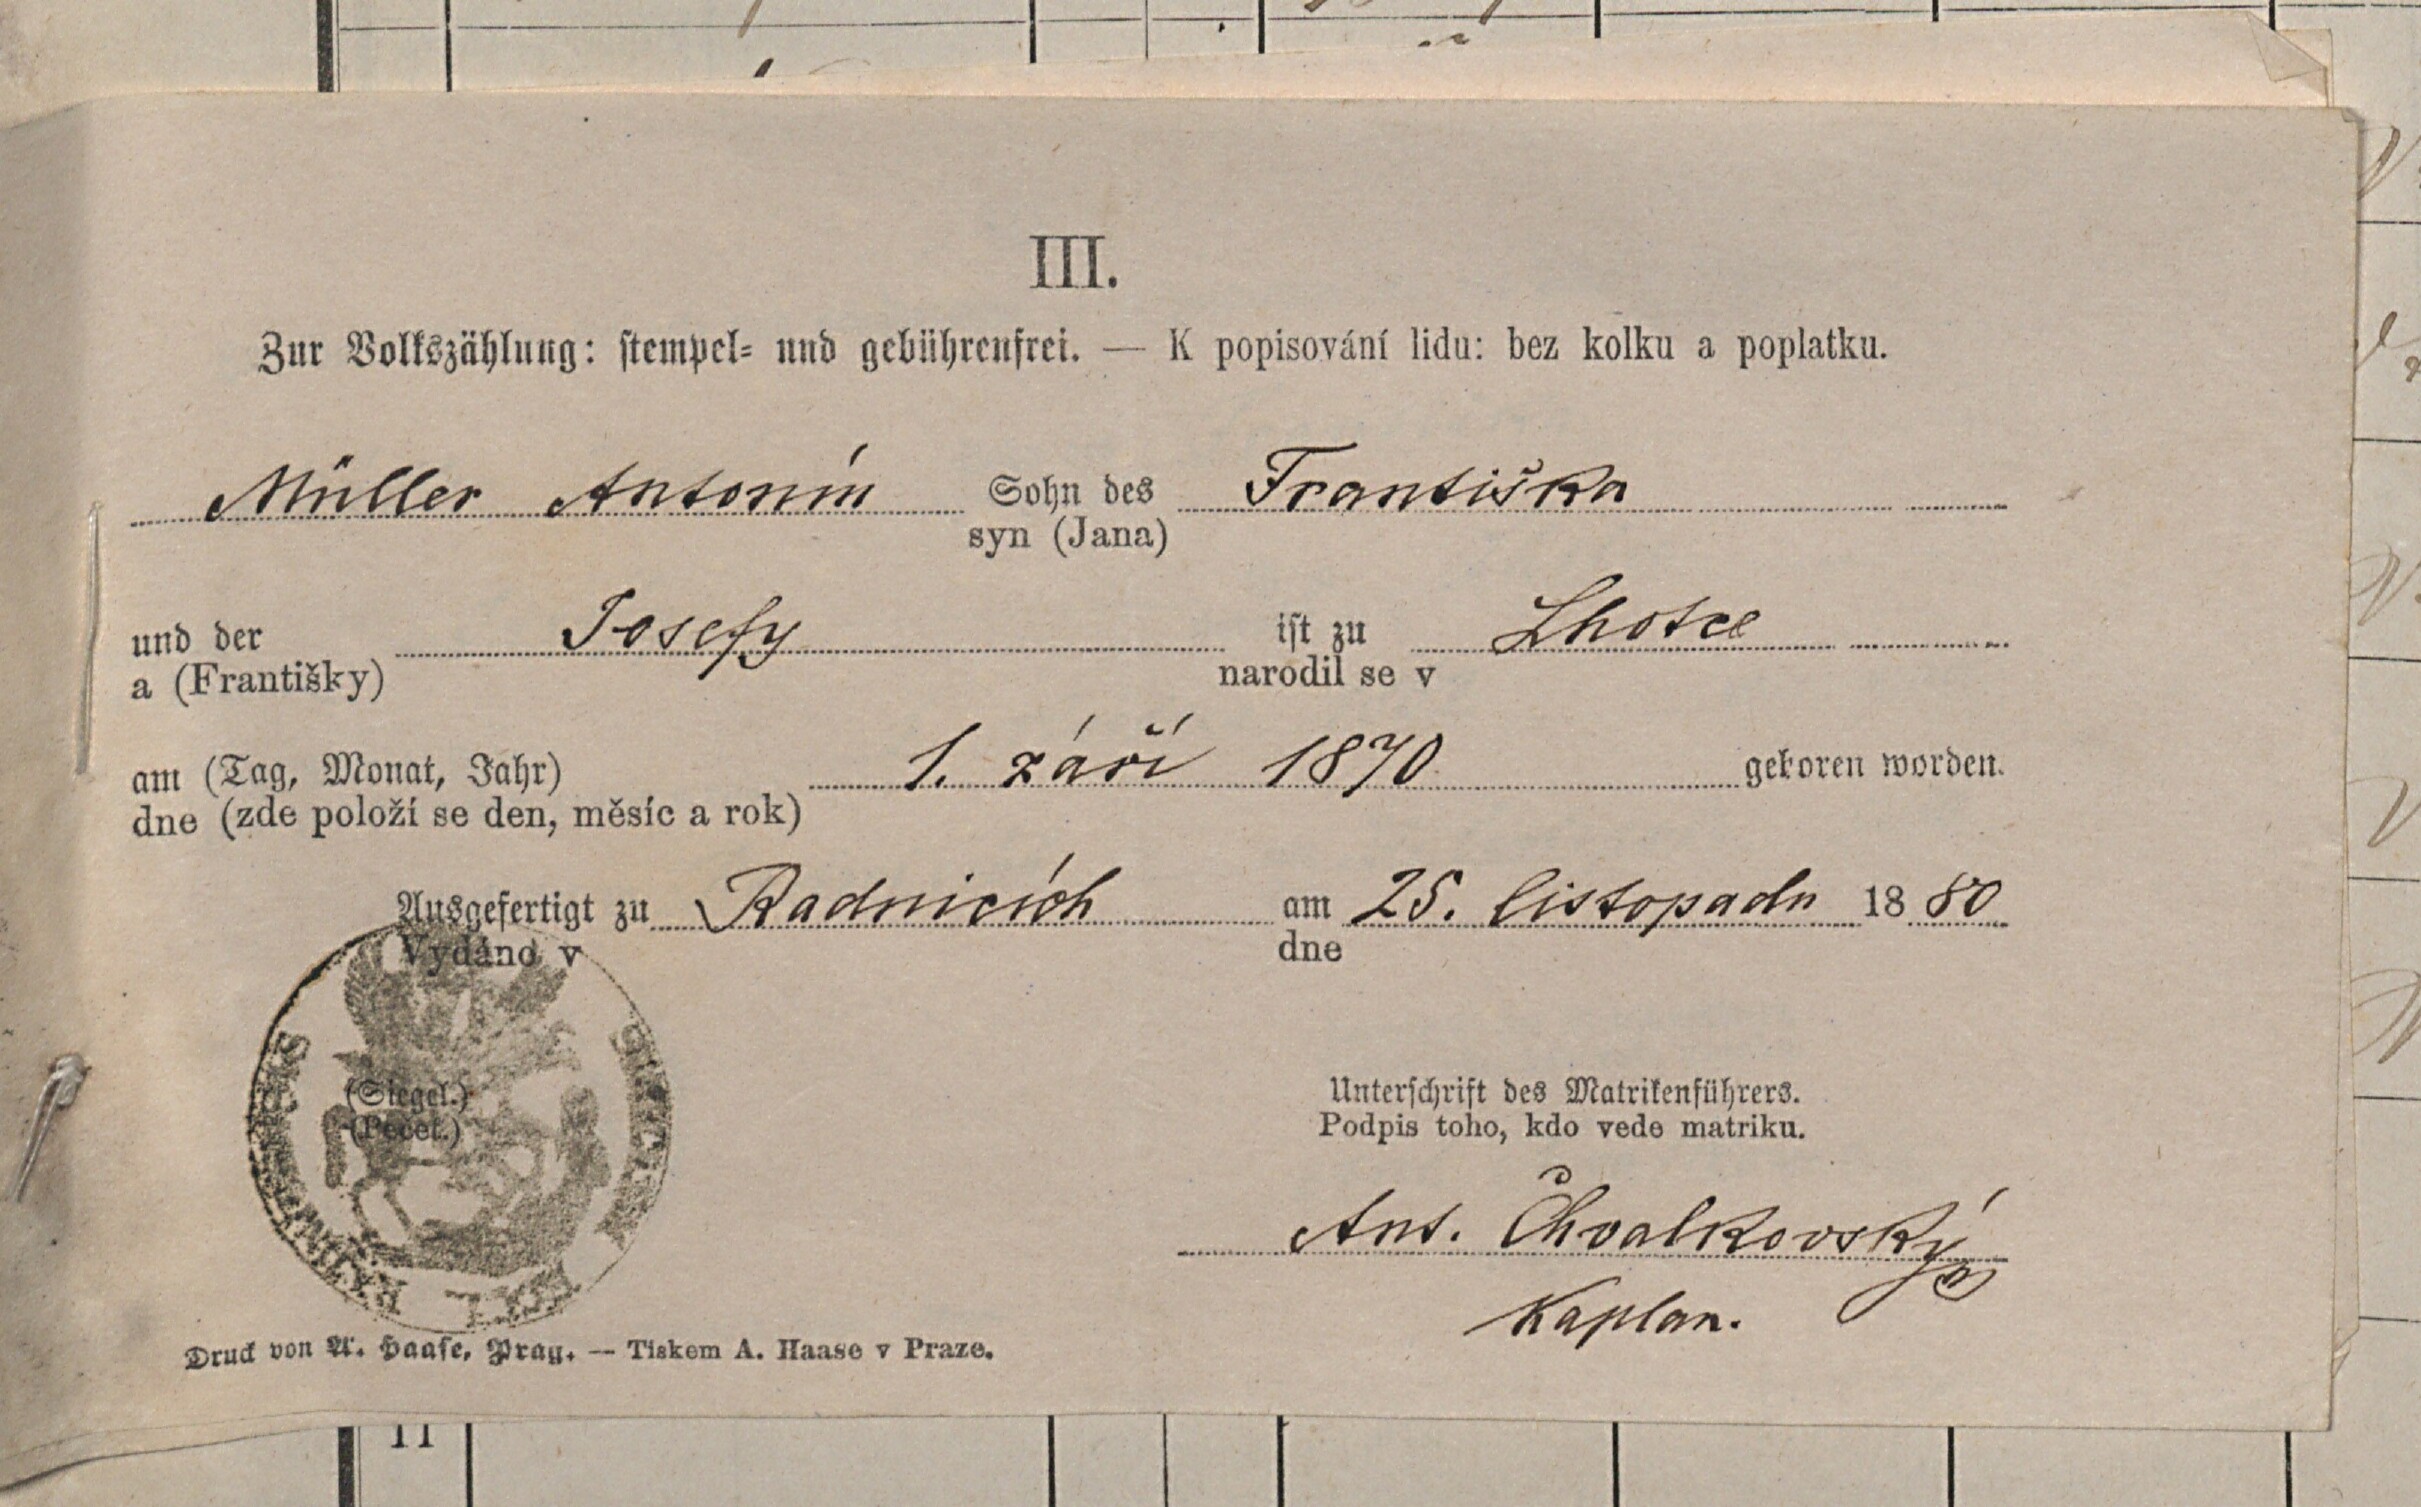 III.
Zur Volkszählung: stempel- und gebührenfrei. — K popisování lidu: bez kolku a poplatku.
Müller Antonín Sohn des Františka
syn (Jana)
und der Josefy ist zu Lhotce
a (Františky) narodil se v
am (Tag, Monat, Jahr) 1. září 1870 geboren worden.
dne (zde položí se den, měsíc a rok)
Ausgefertigt zu Radnicích am 25. listopadu 1880
Vydáno v dne
(Siegel.)
(Pečeť.)
Unterschrift des Matrikenführers.
Podpis toho, kdo vede matriku.
Ant. Chvalkovský
Kaplan.
Druck von A. Haase, Prag. — Tiskem A. Haase v Praze.
11